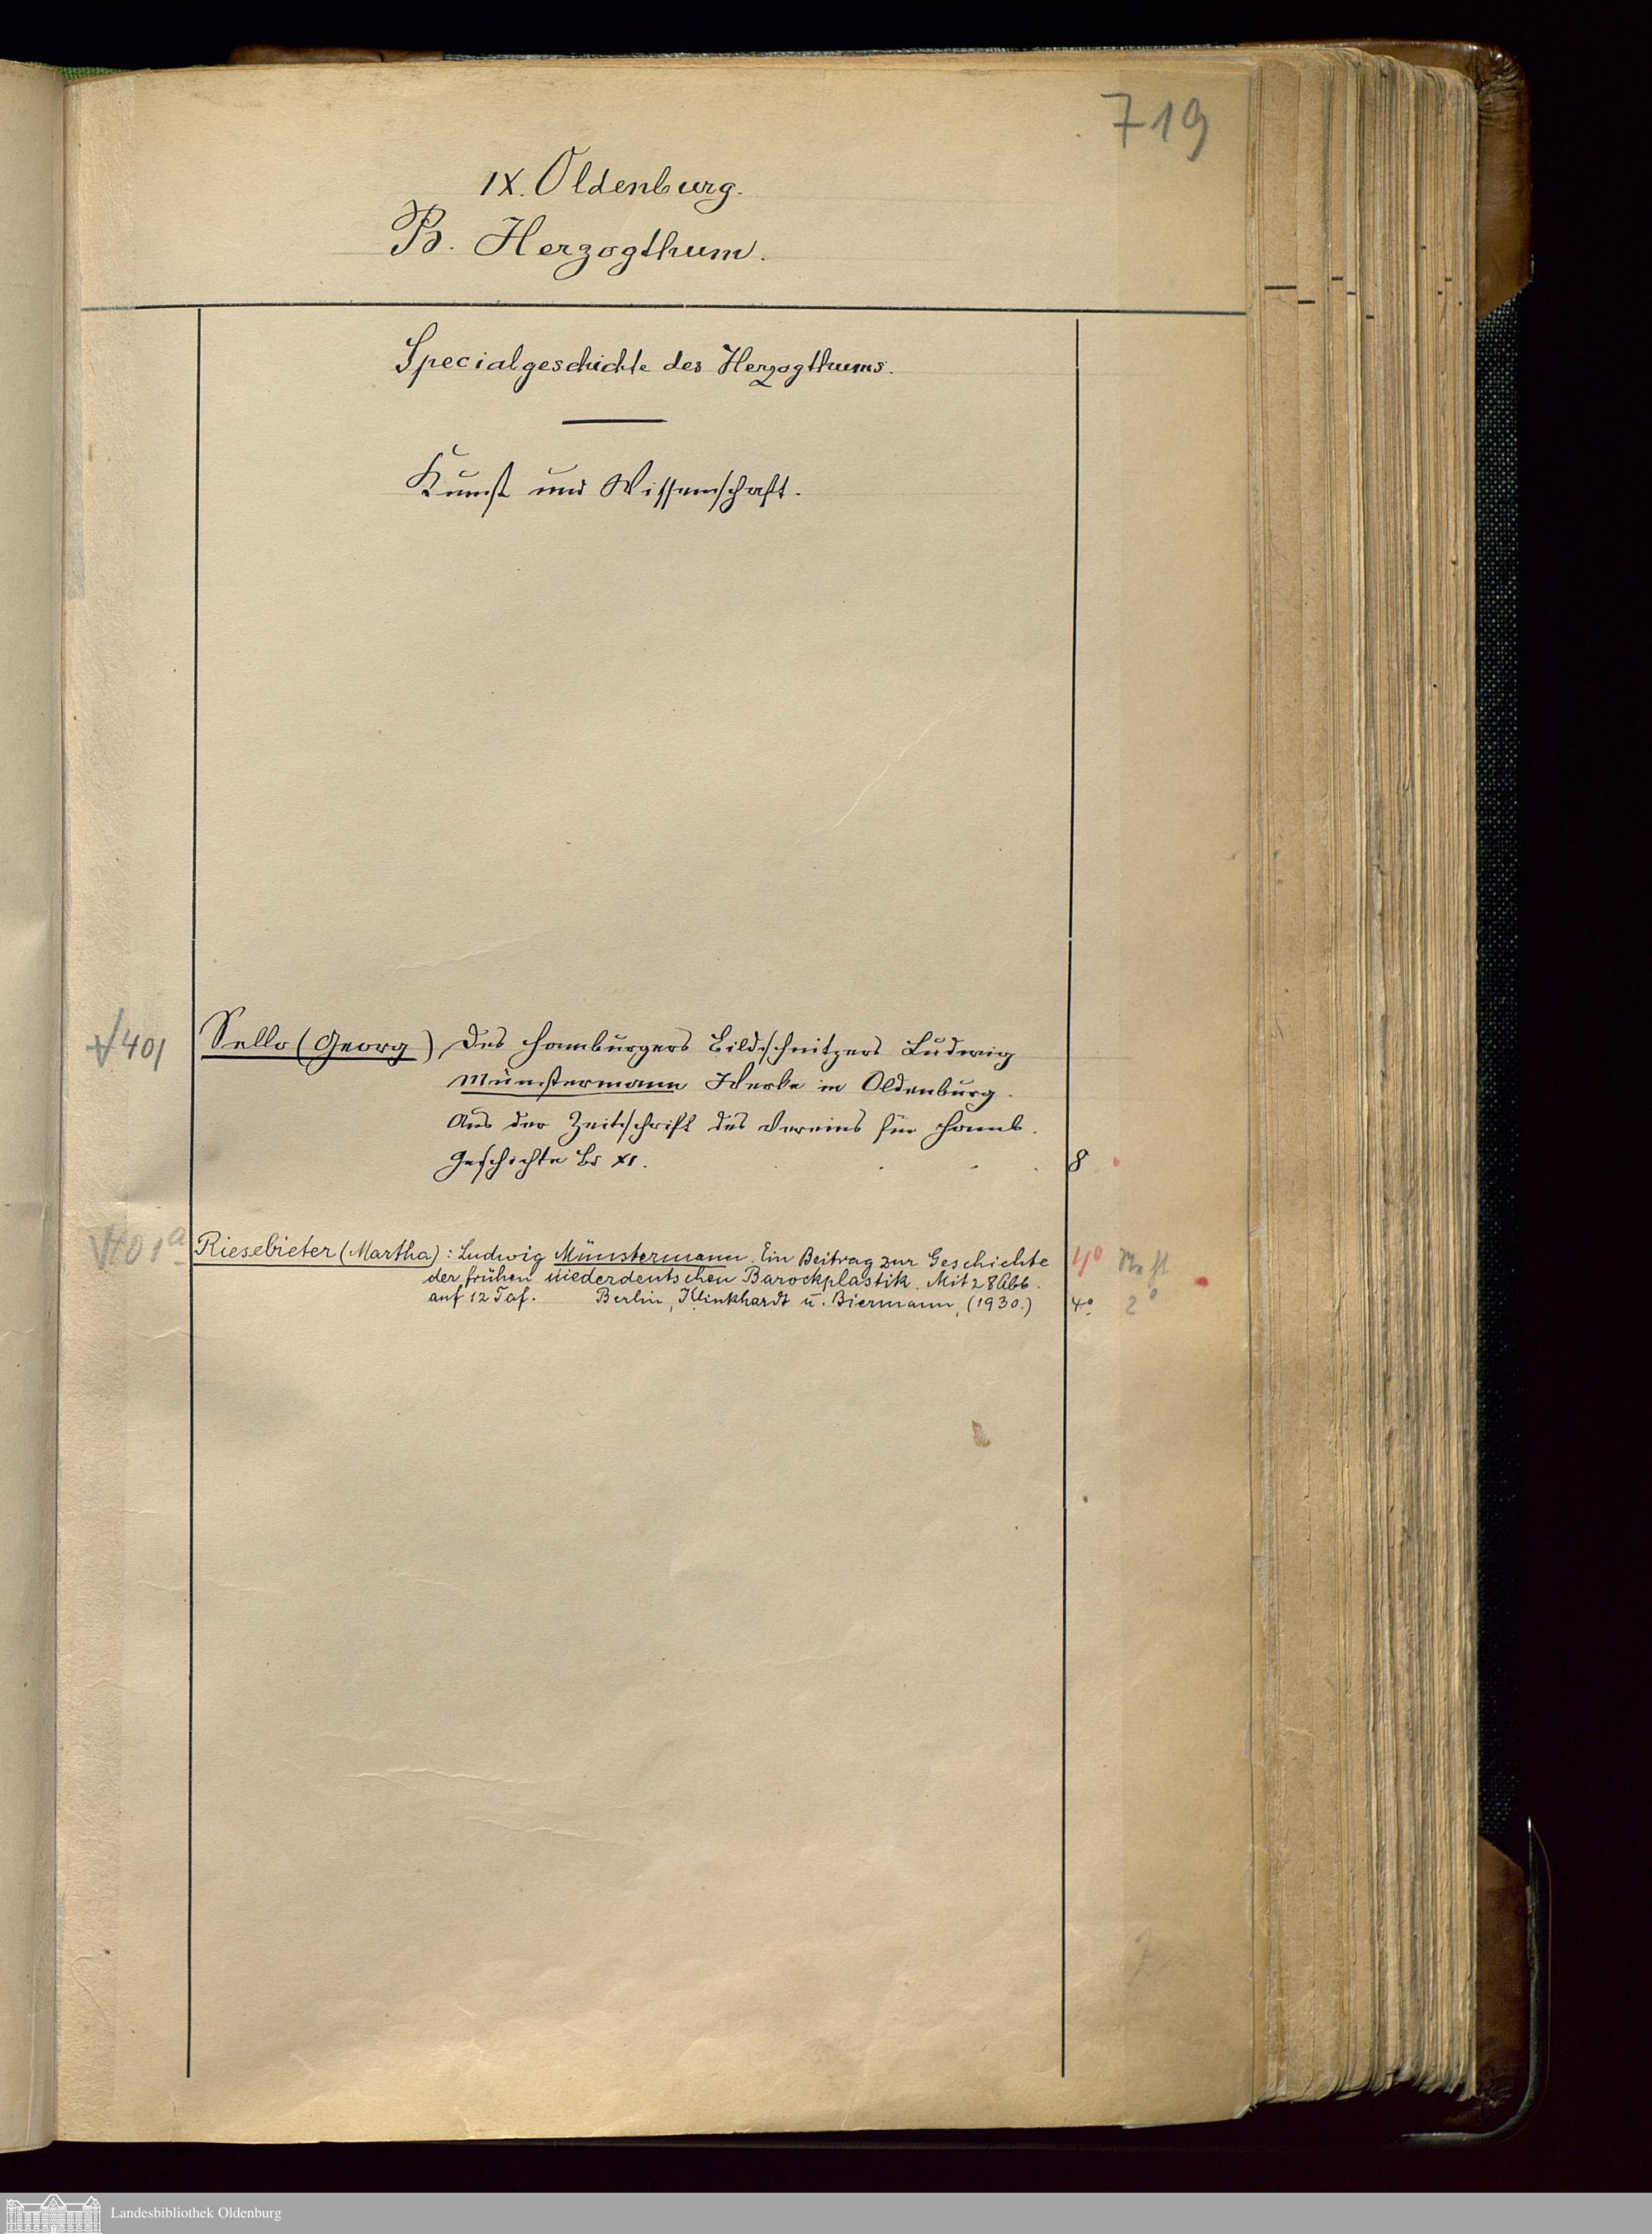 719
IX. Oldenburg.
B. Herzogthum.
Specialgeschichte des Herzogthums.
Kunst und Wissenschaft.
401 Sello (Georg) Des Hamburgers Bildschnitzers Ludwig
Münstermann Werke in Oldenburg.
Aus der Zeitschrift des Vereins für Hamb.
Geschichte Bd XI. 8
401a Riesebieter (Martha): Ludwig Münstermann. Ein Beitrag zur Geschichte 4°
der frühen niederdeutschen Barockplastik. Mit 28 Abb.
auf 12 Taf. Berlin, Klinkhardt u. Biermann, (1930.) 4° 2°
Landesbibliothek Oldenburg